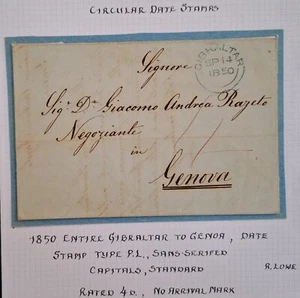 CIRCULAR DATE STAMPS
GIBRALTAR
SP 14
1850
Signore
Sigr Dn Giacomo Andrea Razeto
Negoziante
in
Genova
1850 ENTIRE GIBRALTAR TO GENOA, DATE
STAMP TYPE P.1., SANS-SERIFED
CAPITALS, STANDARD
R. LOWE
RATED 4D., NO ARRIVAL MARK